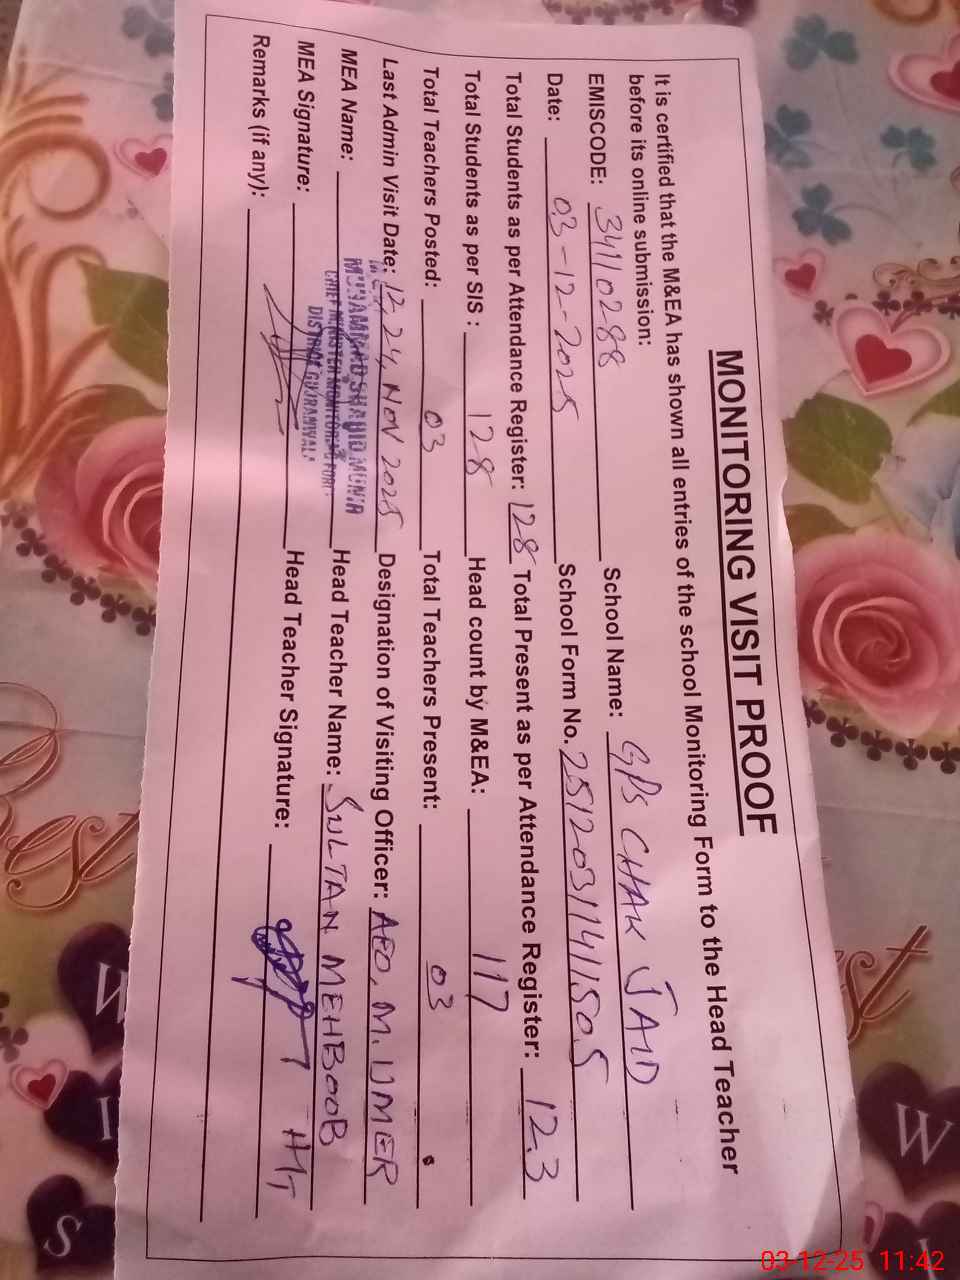 MONITORING VISIT PROOF
It is certified that the M&EA has shown all entries of the school Monitoring Form to the Head Teacher
before its online submission:
EMISCODE: 34110288 School Name: GPS CHAK JAID
Date: 03-12-2025 School Form No. 25120311411505
Total Students as per Attendance Register: 128 Total Present as per Attendance Register: 123
Total Students as per SIS : 128 Head count by M&EA: 117
Total Teachers Posted: 03 Total Teachers Present: 03
Last Admin Visit Date: 24, NOV 2025 Designation of Visiting Officer: AEO, M. UMER
MEA Name: MUHAMMAD SHAHID MUNIR Head Teacher Name: SULTAN MEHBOOB
CHIEF MINISTER MONITORING FORCE
DISTRICT GUJRANWALA
MEA Signature: Head Teacher Signature: HT
Remarks (if any):
W
W
I
S
03-12-25 11:42